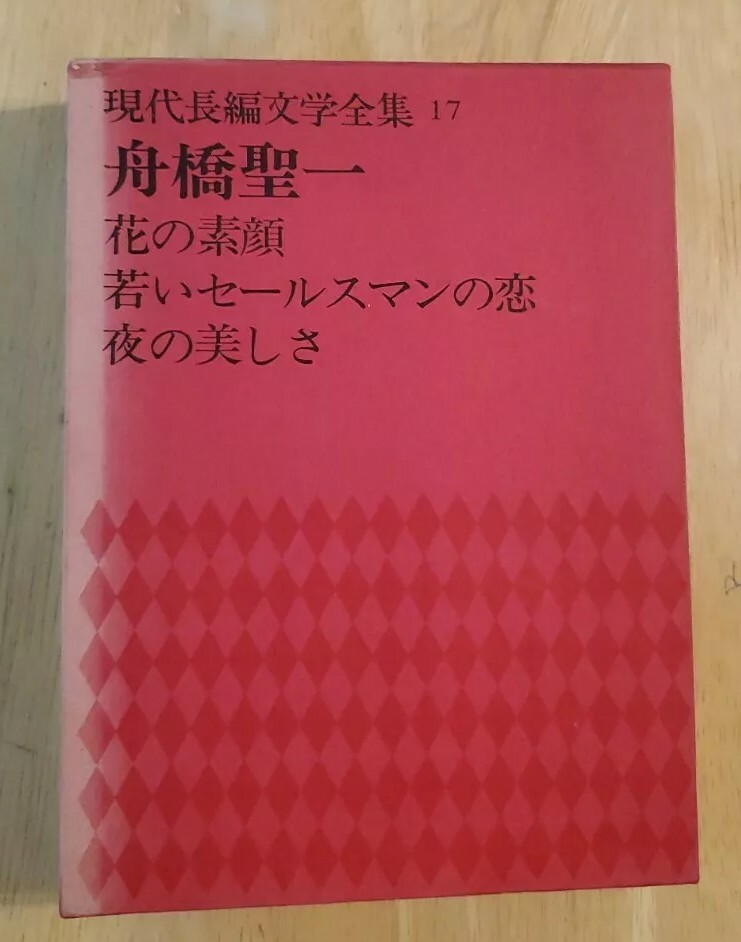 現代長編文学全集 17
舟橋聖一
花の素顔
若いセールスマンの恋
夜の美しさ